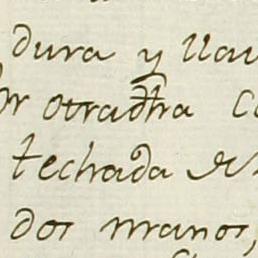 dura y llav
or otra dha c
techada
dos manos,